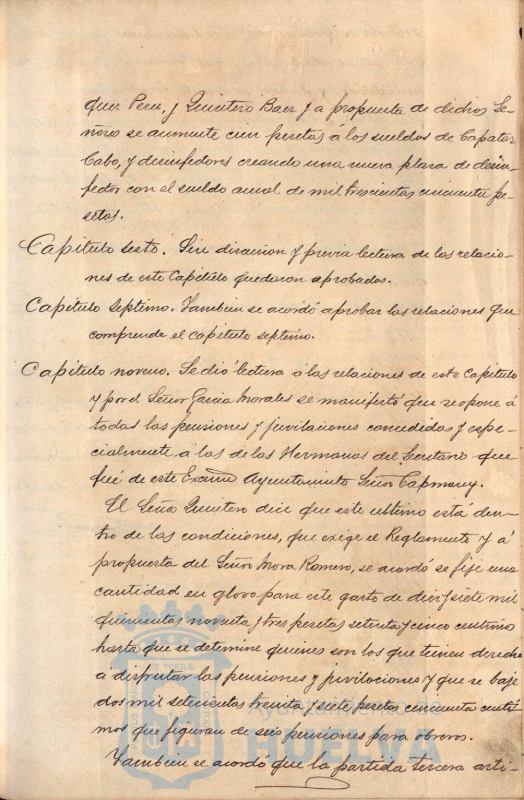 quer Perez, y Quintero Baez y a propuesta de dichos Se-
ñores se aumente cien pesetas á los sueldos de Capataz
Cabo, y desinfectores creando una nueva plaza de desin-
fector con el sueldo anual de mil trescientas cincuenta pe-
setas.
Capitulo sesto. Sin discusion y previa lectura de las relacio-
nes de este Capitulo quedaron aprobadas.
Capitulo septimo. Tambien se acordó aprobar las relaciones que
comprende el capitulo septimo.
Capitulo noveno. Se dió lectura á las relaciones de este Capitulo
y por el Señor Garcia Morales se manifestó que se opone á
todas las pensiones y juvilaciones concedidas y espe-
cialmente á las de las Hermanas del Secretario que
fué de este Excmo Ayuntamiento Señor Capmany.
El Señor Quintero dice que este ultimo está den-
tro de las condiciones, que exige el Reglamento y á
propuesta del Señor Mora Romero, se acordó se fije una
cantidad en glovo para este gasto de diez y siete mil
quinientas noventa y tres pesetas setenta y cinco centimos
hasta que se determine quienes son los que tienen derecho
a disfrutar las pensiones y juvilaciones y que se baje
dos mil setecientas treinta y siete pesetas cincuenta centi-
mos que figuran de seis pensiones para obreros.
Tambien se acordó que la partida tercera arti-
Ayuntamiento de
HUELVA